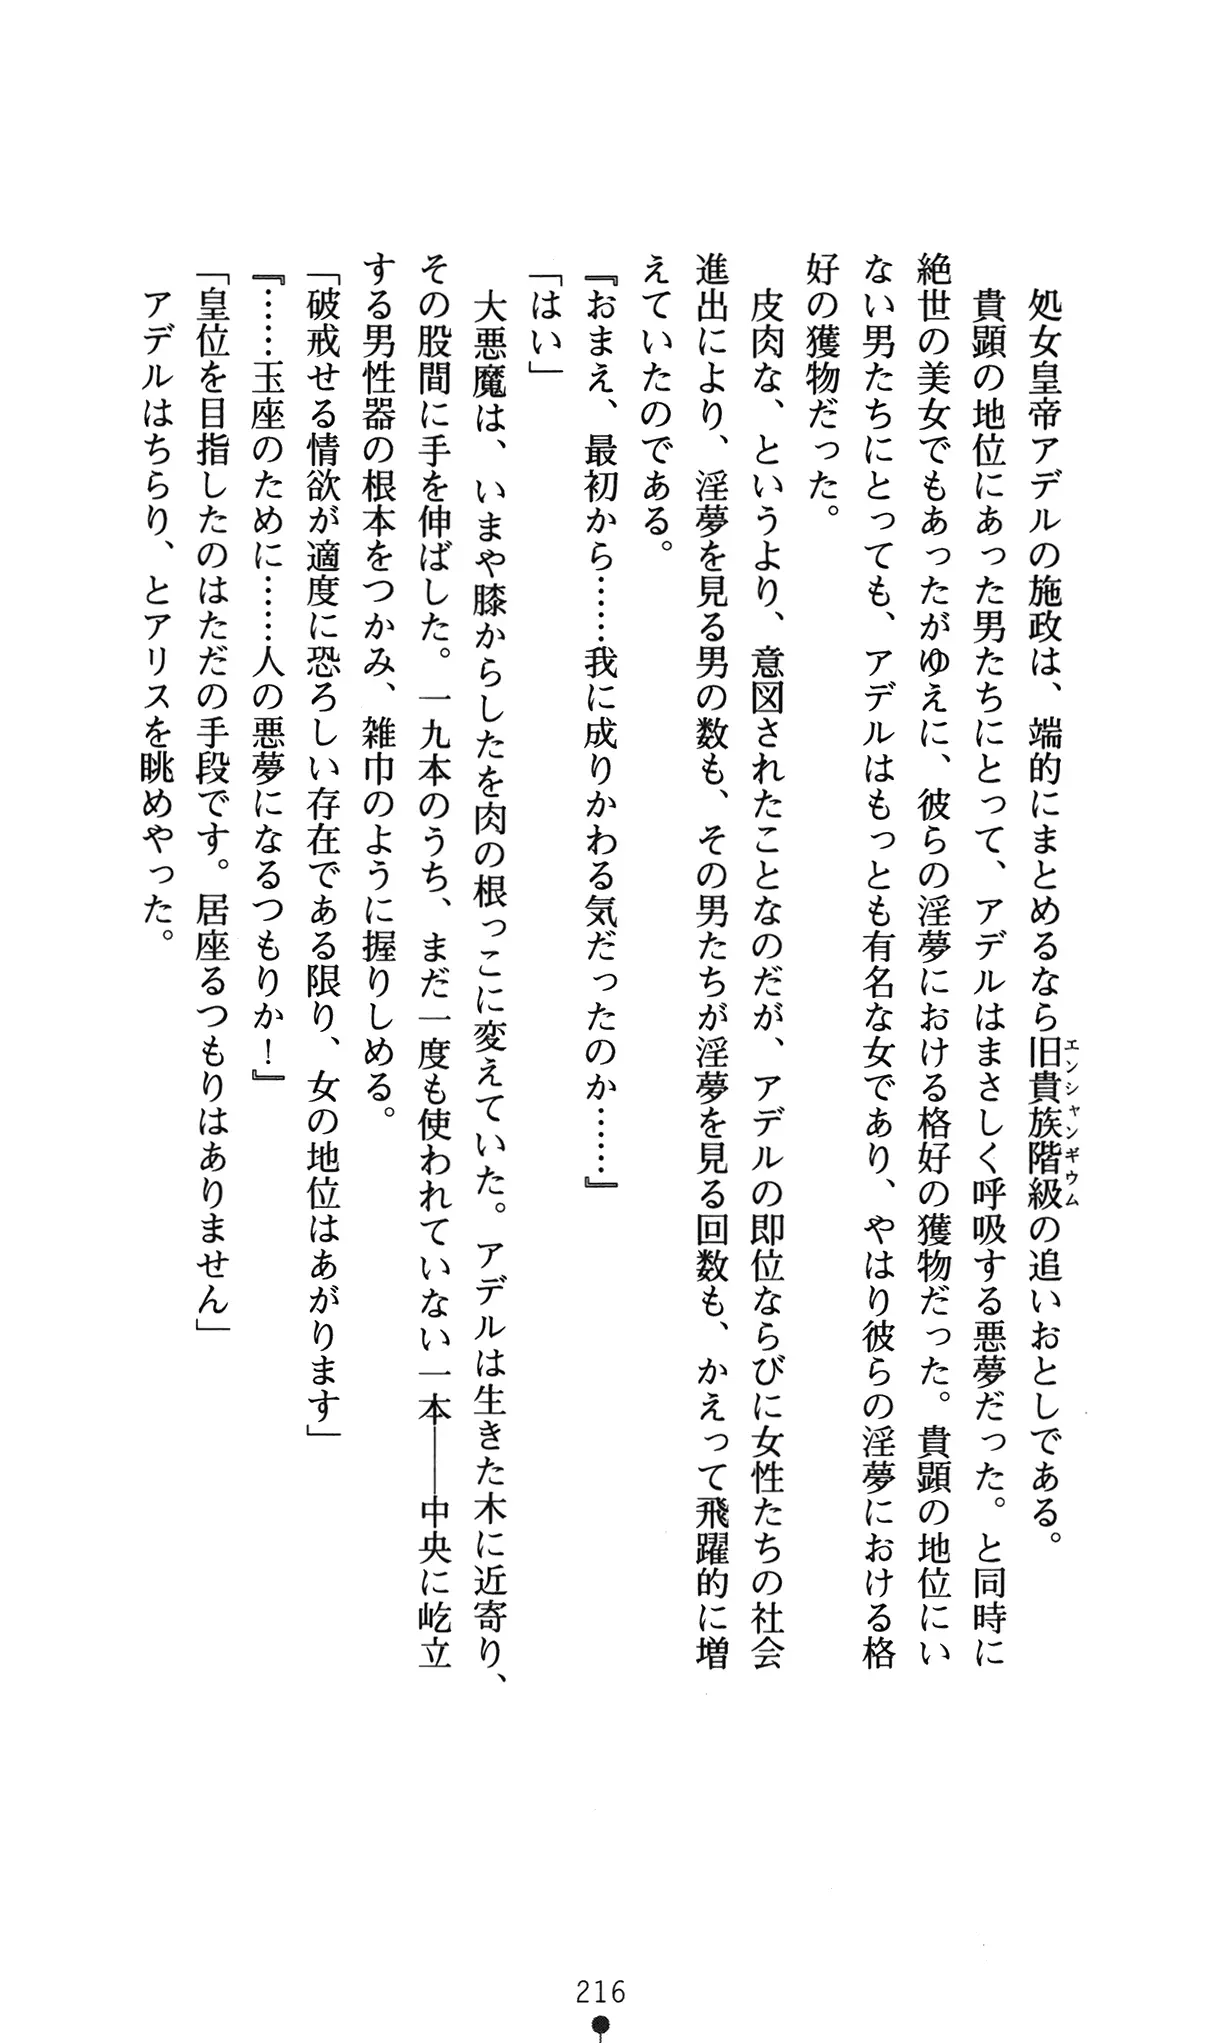 処女皇帝アデルの施政は、端的にまとめるなら旧貴族階級の追いおとしである。
エンシャンギウム
貴顕の地位にあった男たちにとって、アデルはまさしく呼吸する悪夢だった。と同時に
絶世の美女でもあったがゆえに、彼らの淫夢における格好の獲物だった。貴顕の地位にい
ない男たちにとっても、アデルはもっとも有名な女であり、やはり彼らの淫夢における格
好の獲物だった。
皮肉な、というより、意図されたことなのだが、アデルの即位ならびに女性たちの社会
進出により、淫夢を見る男の数も、その男たちが淫夢を見る回数も、かえって飛躍的に増
えていたのである。
『おまえ、最初から……我に成りかわる気だったのか……』
「はい」
大悪魔は、いまや膝からしたを肉の根っこに変えていた。アデルは生きた木に近寄り、
その股間に手を伸ばした。一九本のうち、まだ一度も使われていない一本――中央に屹立
する男性器の根本をつかみ、雑巾のように握りしめる。
「破戒せる情欲が適度に恐ろしい存在である限り、女の地位はあがります」
『……玉座のために……人の悪夢になるつもりか！』
「皇位を目指したのはただの手段です。居座るつもりはありません」
アデルはちらり、とアリスを眺めやった。
216